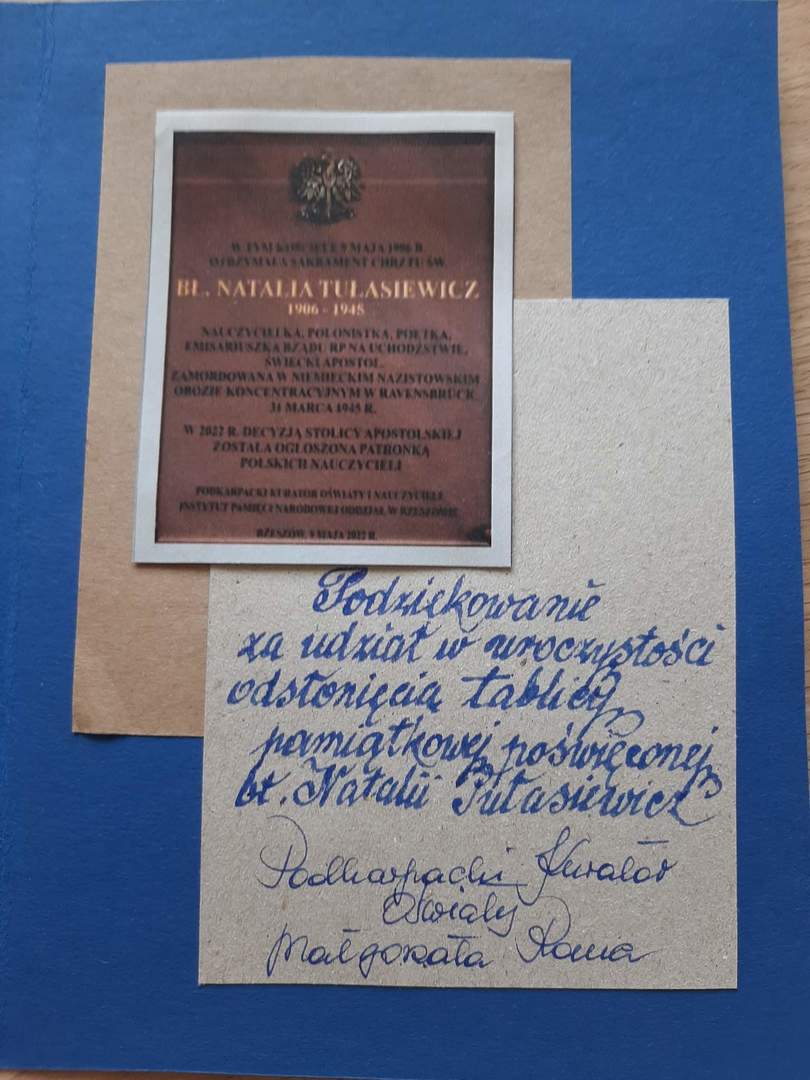 W TYM KOŚCIELE 9 MAJA 1906 R.
OTRZYMAŁA SAKRAMENT CHRZTU ŚW.
BŁ. NATALIA TUŁASIEWICZ
1906 - 1945
NAUCZYCIELKA, POLONISTKA, POETKA,
EMISARIUSZKA RZĄDU RP NA UCHODŹSTWIE,
ŚWIECKI APOSTOŁ.
ZAMORDOWANA W NIEMIECKIM NAZISTOWSKIM
OBOZIE KONCENTRACYJNYM W RAVENSBRÜCK
31 MARCA 1945 R.
W 2022 R. DECYZJĄ STOLICY APOSTOLSKIEJ
ZOSTAŁA OGŁOSZONA PATRONKĄ
POLSKICH NAUCZYCIELI
PODKARPACKI KURATOR OŚWIATY I NAUCZYCIELE
INSTYTUT PAMIĘCI NARODOWEJ ODDZIAŁ W RZESZOWIE
RZESZÓW, 9 MAJA 2022 R.
Podziękowanie
za udział w uroczystości
odsłonięcia tablicy
pamiątkowej poświęconej
bł. Natalii Tułasiewicz
Podkarpacki Kurator
Oświaty
Małgorzata Rauch